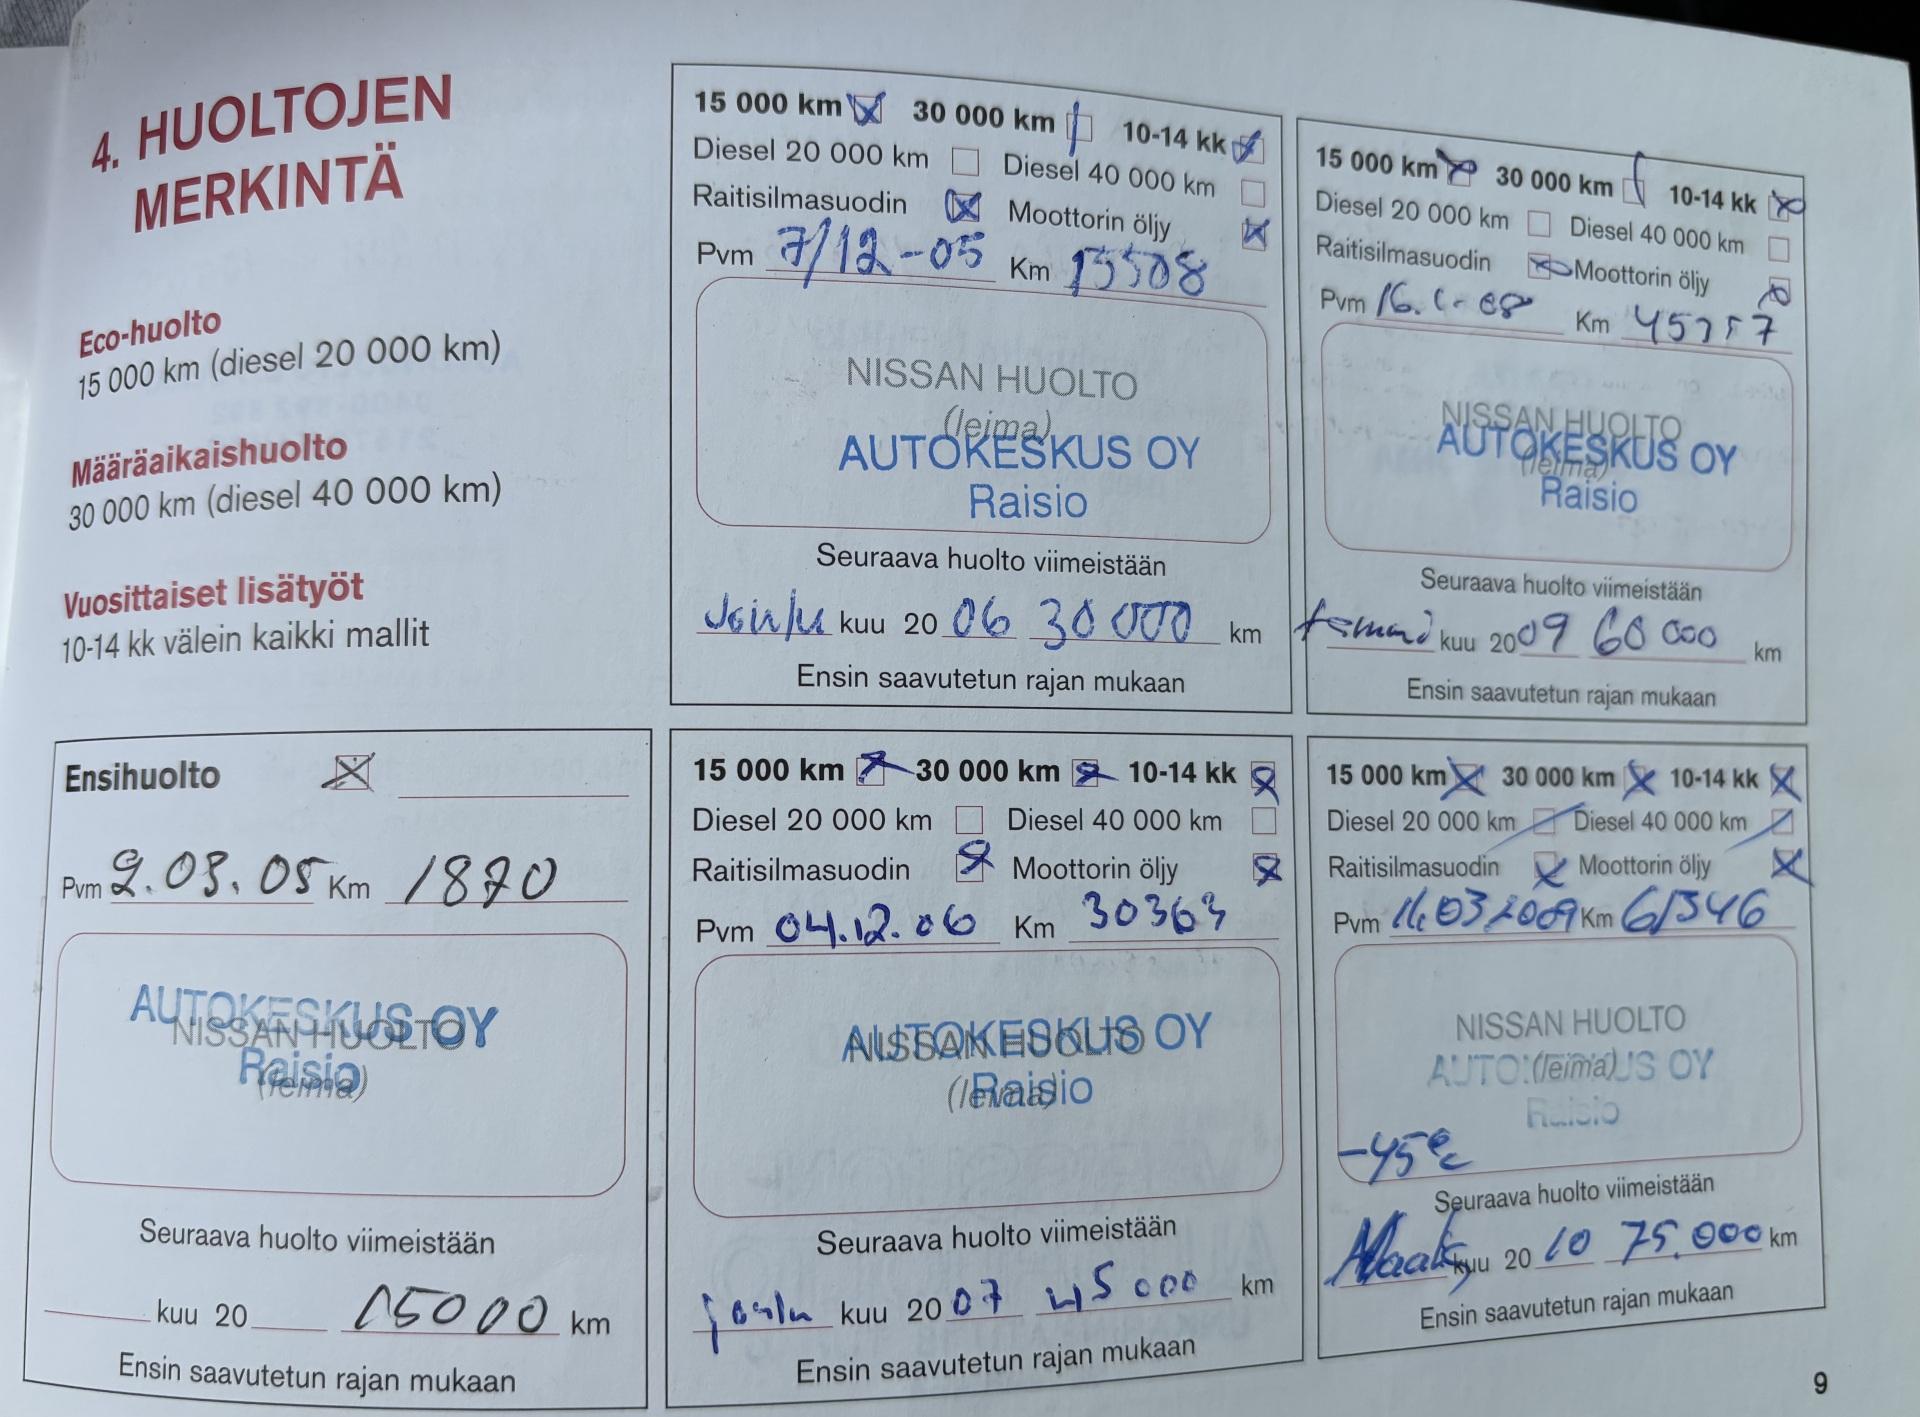 4. HUOLTOJEN
MERKINTÄ
Eco-huolto
15 000 km (diesel 20 000 km)
Määräaikaishuolto
30 000 km (diesel 40 000 km)
Vuosittaiset lisätyöt
10-14 kk välein kaikki mallit
Ensihuolto
Pvm 2.03.05 Km 1870
AUTOKESKUS OY
NISSAN HUOLTO
Raisio
(leima)
Seuraava huolto viimeistään
kuu 20 15000 km
Ensin saavutetun rajan mukaan
15 000 km 30 000 km 10-14 kk
Diesel 20 000 km Diesel 40 000 km
Raitisilmasuodin Moottorin öljy
Pvm 7/12-05 Km 15508
NISSAN HUOLTO
(leima)
AUTOKESKUS OY
Raisio
Seuraava huolto viimeistään
Joulu kuu 20 06 30 000 km
Ensin saavutetun rajan mukaan
15 000 km 30 000 km 10-14 kk
Diesel 20 000 km Diesel 40 000 km
Raitisilmasuodin Moottorin öljy
Pvm 04.12.06 Km 30363
AUTOKESKUS OY
NISSAN HUOLTO
Raisio
(leima)
Seuraava huolto viimeistään
joulu kuu 20 07 45 000 km
Ensin saavutetun rajan mukaan
15 000 km 30 000 km 10-14 kk
Diesel 20 000 km Diesel 40 000 km
Raitisilmasuodin Moottorin öljy
Pvm 16.1-08 Km
NISSAN HUOLTO
AUTOKESKUS OY
(leima)
Raisio
Seuraava huolto viimeistään
tammi kuu 20 09 60 000 km
Ensin saavutetun rajan mukaan
15 000 km 30 000 km 10-14 kk
Diesel 20 000 km Diesel 40 000 km
Raitisilmasuodin Moottorin öljy
Pvm 11.03.2009 Km 61346
NISSAN HUOLTO
AUTOKESKUS OY
(leima)
Raisio
-45°C
Seuraava huolto viimeistään
Maalis kuu 20 10 75.000 km
Ensin saavutetun rajan mukaan
9